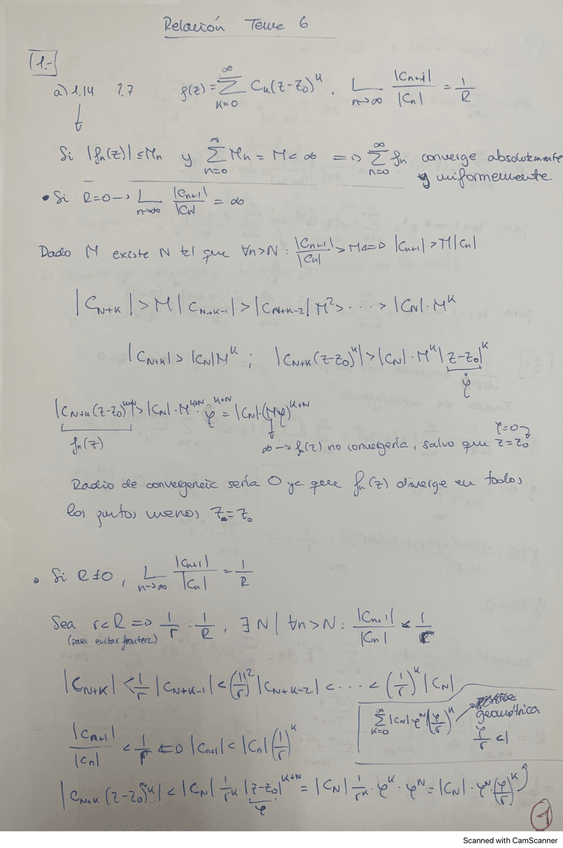 Relación Tema 6
1.-
a) 1.14 1.7 f(z) = ∑_{k=0}^{∞} C_k(z-z₀)^k, Lim_{n→∞} |C_{n+1}|/|C_n| = 1/R
Si |f_n(z)| ≤ M_n y ∑_{n=0}^{∞} M_n = M < ∞ => ∑_{n=0}^{∞} f_n converge absolutamente
y uniformemente
• Si R=0 → Lim_{n→∞} |C_{n+1}|/|C_n| = ∞
Dado M existe N tal que ∀n>N: |C_{n+1}|/|C_n| > M <=> |C_{n+1}| > M|C_n|
|C_{N+K}| > M|C_{N+K-1}| > |C_{N+K-2}|M² > ... > |C_N|·M^K
|C_{N+K}| > |C_N|M^K ; |C_{N+K}(z-z₀)^K| > |C_N|·M^K|z-z₀|^K
φ
|C_{N+K}(z-z₀)^{K+N}| > |C_N|·M^{K+N}·φ^{K+N} = |C_N|·(Mφ)^{K+N}
f_n(z) ∞ → f_n(z) no convergería, salvo que φ=0 z=z₀
Radio de convergencia sería 0 ya que f_n(z) diverge en todos
los puntos menos z=z₀
• Si R≠0, Lim_{n→∞} |C_{n+1}|/|C_n| = 1/R
Sea r<R => 1/r · 1/R, ∃N | ∀n>N: |C_{n+1}|/|C_n| < 1/r
(para evitar
|C_{N+K}| < 1/r |C_{N+K-1}| < (1/r)² |C_{N+K-2}| < ... < (1/r)^K |C_N|
∑_{K=0}^{∞} |C_N| φ^N (φ/r)^K geométrica
φ/r <1
|C_{n+1}|/|C_n| < 1/r <=> |C_{n+1}| < |C_n|(1/r)^K
|C_{N+K}(z-z₀)^{N+K}| < |C_N| 1/r^K |z-z₀|^{K+N} = |C_N| 1/r^K · φ^K · φ^N = |C_N|·φ^N·(φ/r)^K
φ
1
Scanned with CamScanner